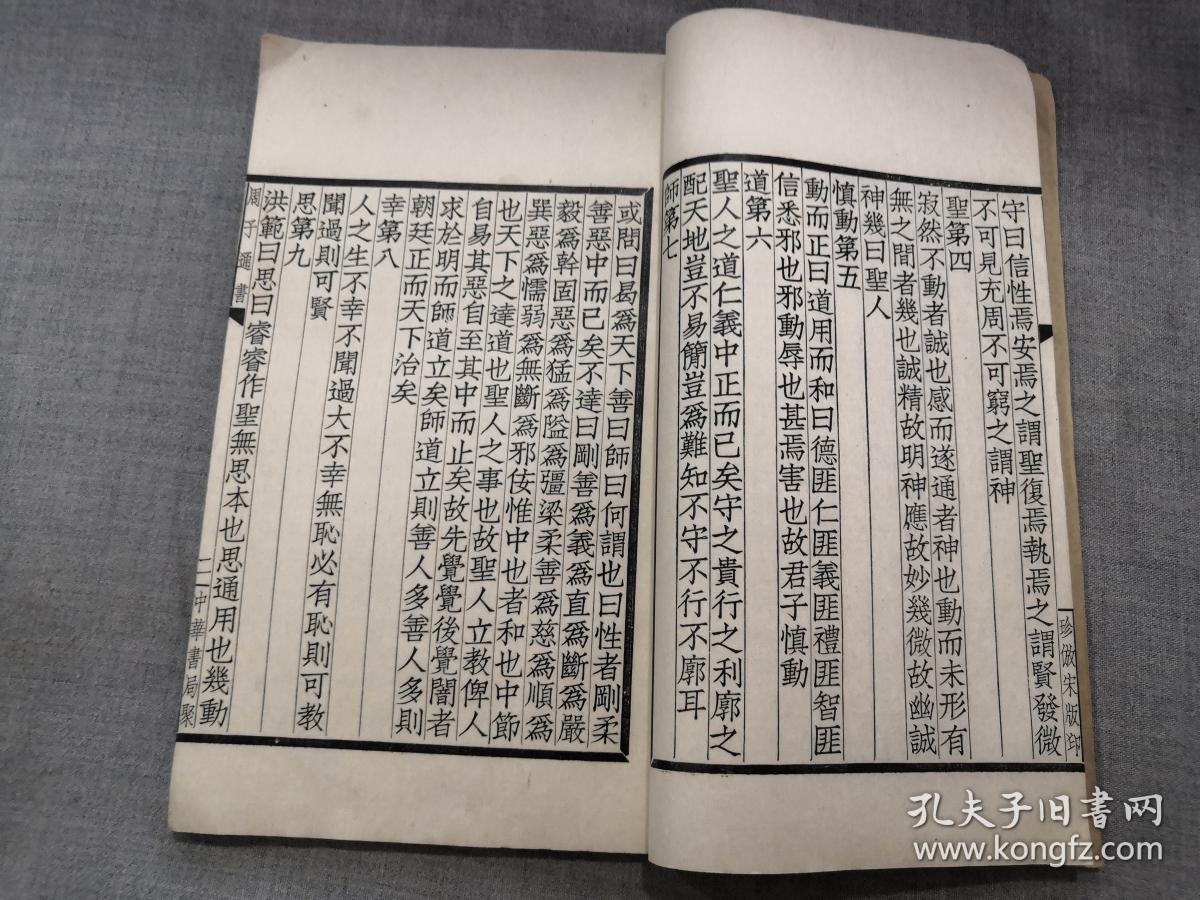 珍倣宋版印
守曰信性焉安焉之謂聖復焉執焉之謂賢發微
不可見充周不可窮之謂神
聖第四
寂然不動者誠也感而遂通者神也動而未形有
無之間者幾也誠精故明神應故妙幾微故幽誠
神幾曰聖人
慎動第五
動而正曰道用而和曰德匪仁匪義匪禮匪智匪
信悉邪也邪動辱也甚焉害也故君子慎動
道第六
聖人之道仁義中正而已矣守之貴行之利廓之
配天地豈不易簡豈為難知不守不行不廓耳
師第七
或問曰曷為天下善曰師曰何謂也曰性者剛柔
善惡中而已矣不達曰剛善為義為直為斷為嚴
毅為幹固惡為猛為隘為彊梁柔善為慈為順為
巽惡為懦弱為無斷為邪佞惟中也者和也中節
也天下之達道也聖人之事也故聖人立教俾人
自易其惡自至其中而止矣故先覺覺後覺闇者
求於明而師道立矣師道立則善人多善人多則
朝廷正而天下治矣
幸第八
人之生不幸不聞過大不幸無恥必有恥則可教
聞過則可賢
思第九
洪範曰思曰睿睿作聖無思本也思通用也幾動
周子通書
二
中華書局聚
孔夫子旧书网
www.kongfz.com